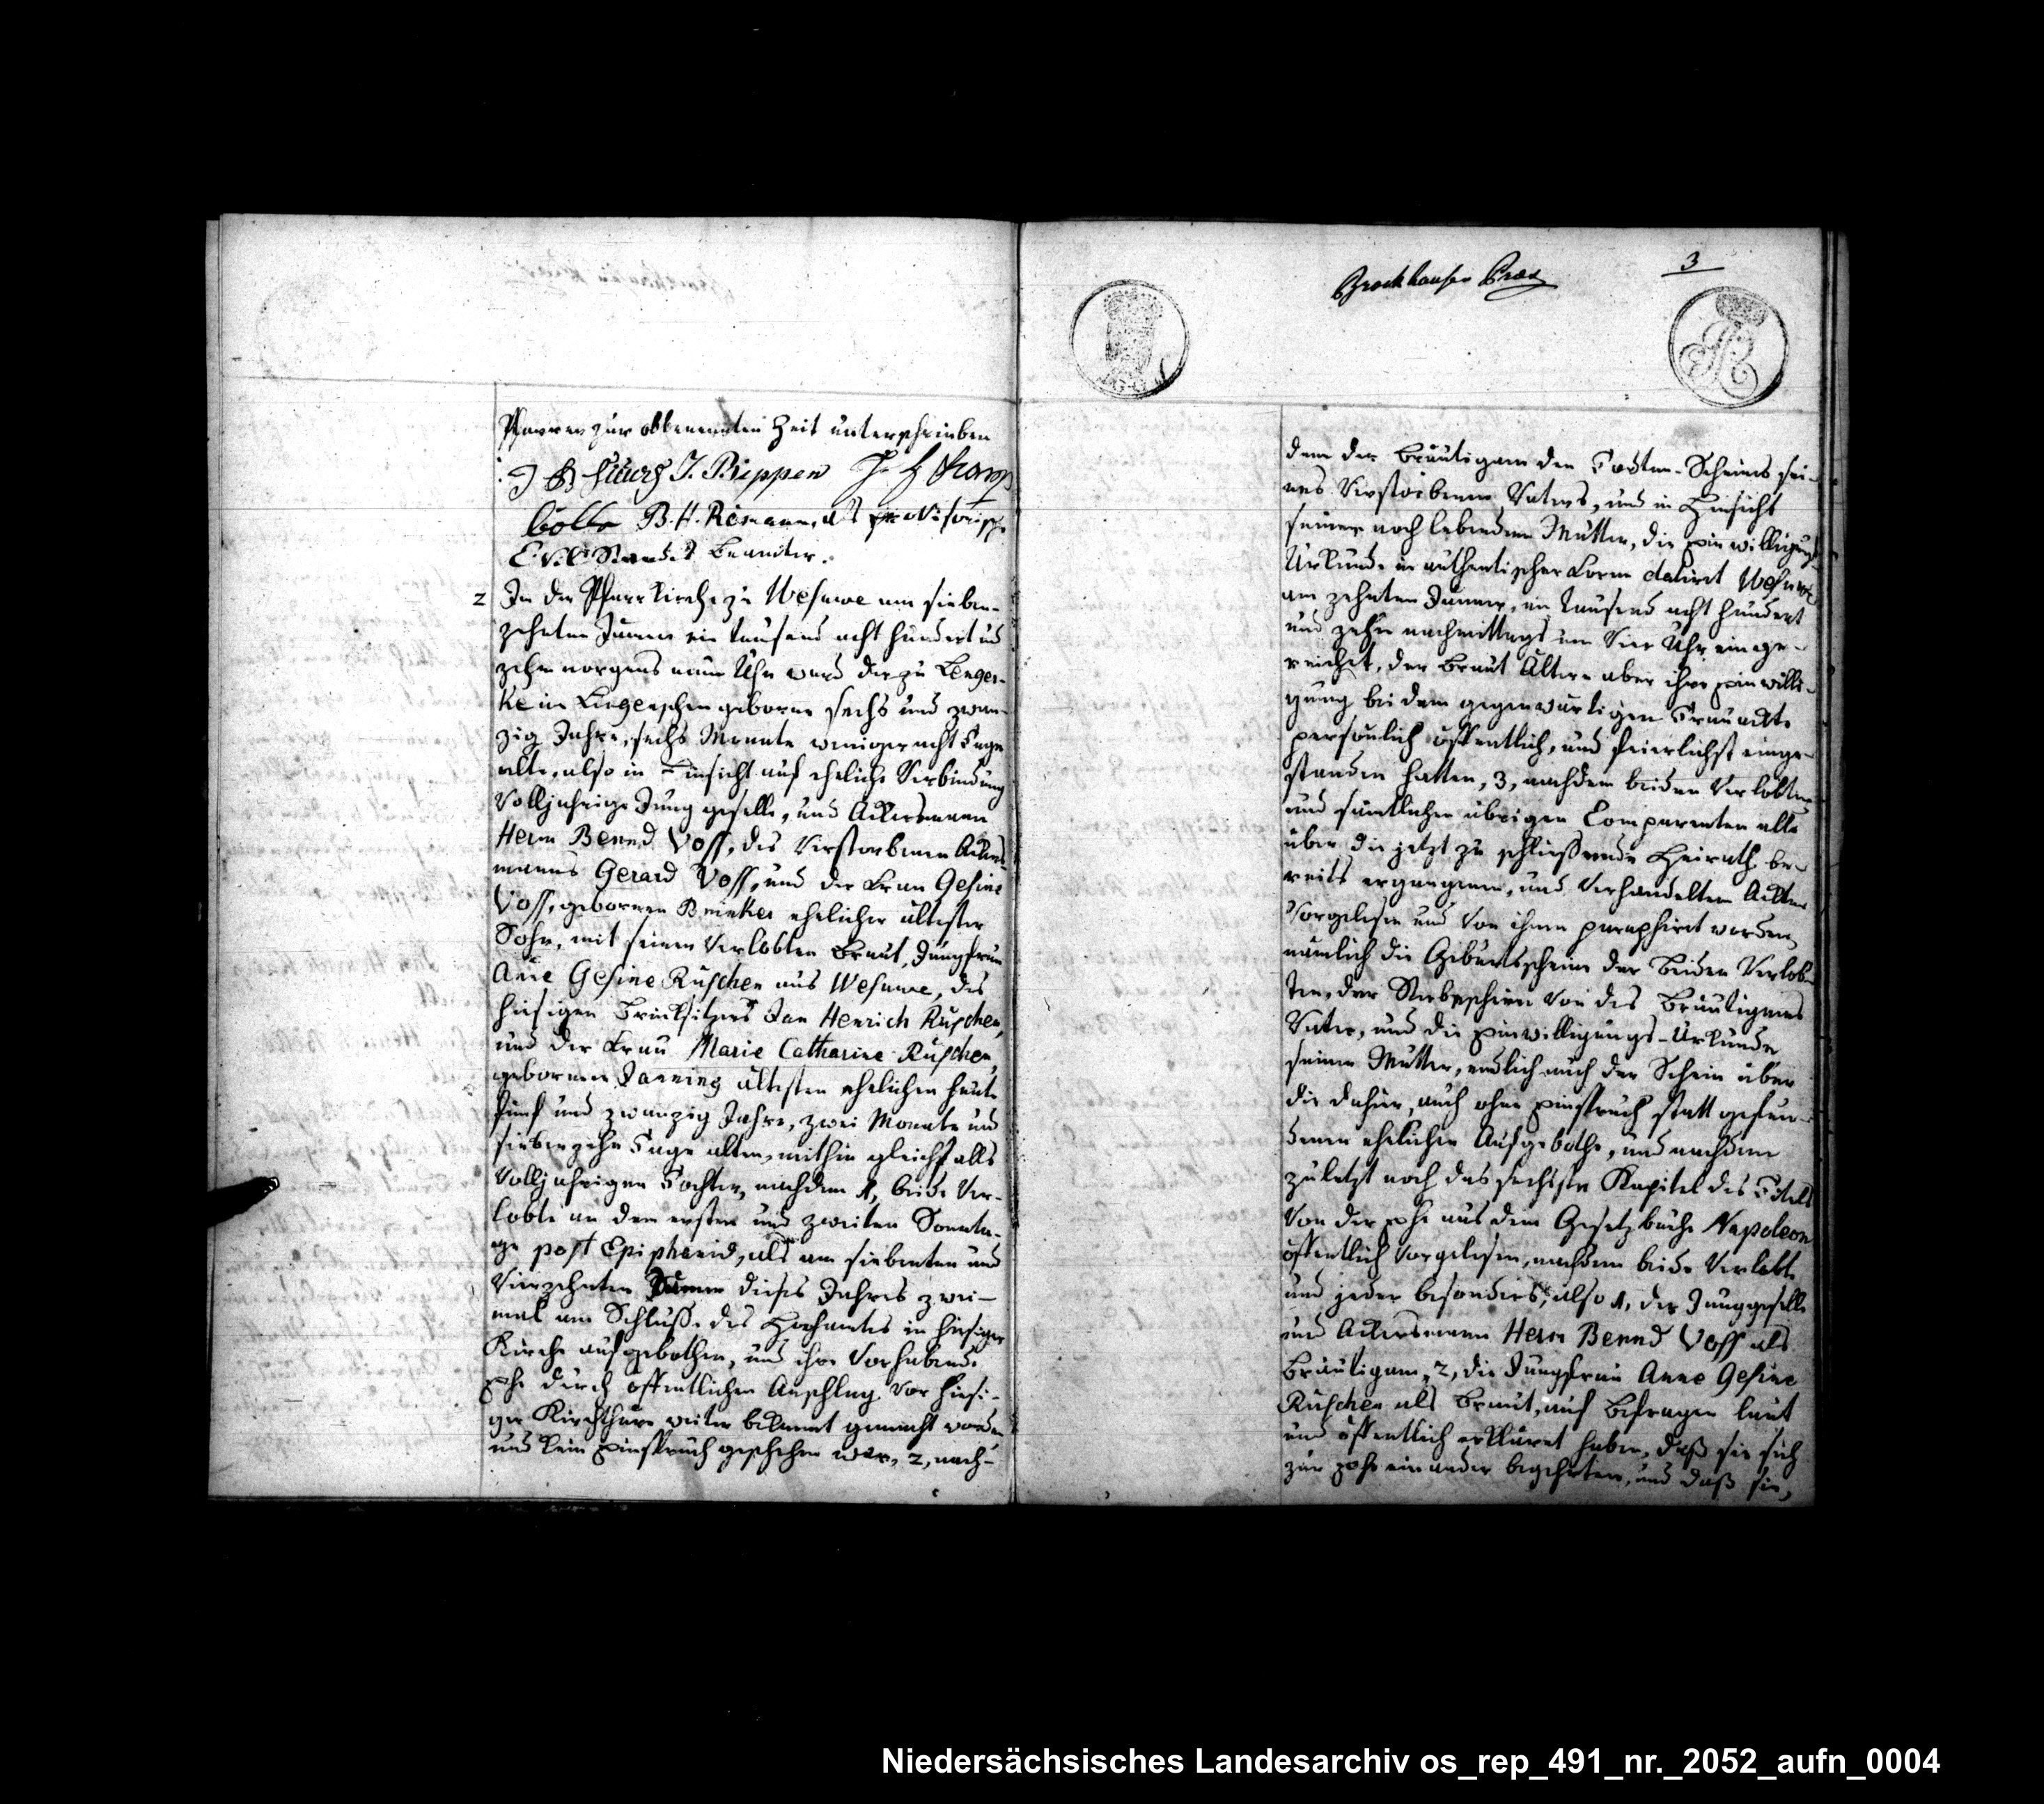 Pfarrer zur obbenannten Zeit unterschrieben
J. Bippen
B. H. Rismann, als provisorisch
Civil Standes Beamter.
2 In der Pfarrkirche zu Wesuwe am sieben-
zehnten Januar ein tausend acht hundert und
zehn morgens neun Uhr ward der zu Lenge-
ke im Lingenschen geborne sechs und zwan-
zig Jahre, sechs Monate weniger acht Tage
alte, also in Hinsicht auf eheliche Verbindung
Volljahrige Jung geselle, und Ackersmann
Herm Bernd Voss, des Verstorbenen Ackers-
manns Gerard Voss, und der Frau Gesine
Voss, gebornen Brinker ehelicher ältester
Sohn, mit seiner Verlobten Braut, Jungfrau
Añe Gesine Ruschen aus Wesuwe, des
hiesigen Brinksitzers Jan Henrich Ruschen,
und der Frau Marie Catharine Ruschen,
gebornen Janning ältesten ehelichen heute
fünf und zwanzig Jahre, zwei Monate und
siebenzehn Tage alten, mithin gleichfalls
Volljahrigen Tochter, nachdem 1, beide Ver-
lobte an dem ersten und zweiten Sonnta-
ge post Epiphanid, als am siebenten und
Vierzehnten Januar dieses Jahres zwei-
mal am Schlusse des Hochamtes in hiesiger
Kirche aufgebothen, und ihre Vorhabende
Ehe durch öffentlichen Anschlag vor hiesi-
ger Kirchthure weiter bekannt gemacht worden
und kein Einspruch geschehen war, 2, nach-
Brockhausen Præs
3
dem der Bräutigam den Todten-Schein sei-
nes Verstorbenen Vaters, und in Hinsicht
seiner noch lebenden Mutter, die Einwilligungs-
Urkunde in authentischer Form datirt Wesuwe
am zehnten Januar, ein tausend acht hundert
und zehn nachmittags um Vier Uhr einge-
reicht, der Braut Ältern aber ihre Einwilli-
gung bei dem gegenwärtigen Trauackte
persönlich öffentlich, und feierlichst einge-
standen hatten, 3, nachdem beiden Verlobten
und sämtlichen übrigen Comparenten alle
über die jetzt zu schliessende Heirath be-
reits ergangenen, und Verhandelten Ackten
Vorgelesen und Von ihnen paraphirt worden,
nämlich die Geburtsscheine der beiden Verlob-
ten, der Sterbeschein Von des Bräutigams
Vater, und die Einwilligungs-Urkunde
seiner Mutter, endlich auch der Schein über
die dahier, auch ohne Einspruch statt gefun-
denen ehelichen Aufgebothe, und nachdem
zuletzt noch das sechste Kapitel des Titels
Von der Ehe aus dem Gesetzbuche Napoleon
öffentlich Vorgelesen, nachdem beide Verlobte
und jeder besonders, also 1, der Junggeselle
und Ackersmann Herm Bernd Voss als
Bräutigam, 2, die Jungfrau Anne Gesine
Ruschen als Braut, auf Befragen laut
und öffentlich erkläret haben, daß sie sich
zur Ehe einander begehrten, und daß sie,
Niedersächsisches Landesarchiv os_rep_491_nr._2052_aufn_0004